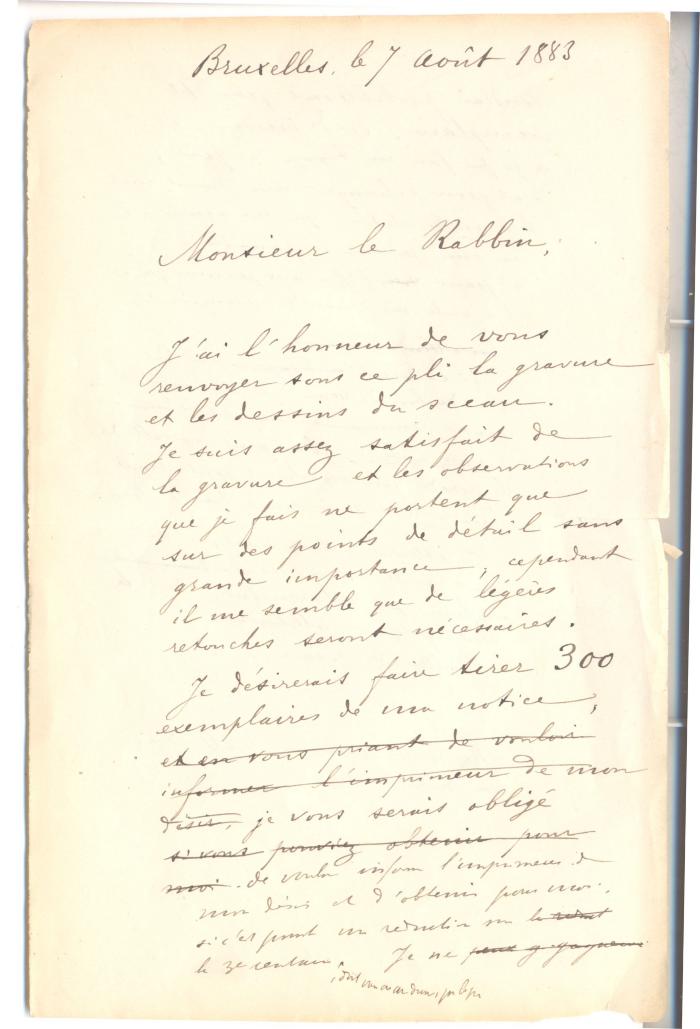 Bruxelles, le 7 Août 1883
Monsieur le Rabbin,
J'ai l'honneur de vous
renvoyer sous ce pli la gravure
et les dessins du sceau.
Je suis assez satisfait de
la gravure et les observations
que je fais ne portent que
sur des points de détail sans
grande importance ; cependant
il me semble que de légères
retouches seront nécessaires.
Je désirerais faire tirer 300
exemplaires de ma notice ;
et en vous priant de vouloir
informer l'imprimeur de mon
désir, je vous serais obligé
si vous pouviez obtenir pour
moi de vouloir inform l'imprimeur de
mon désir et d'obtenir pour moi,
si c'est une réduction sur le
le 3e centaine. Je ne peux